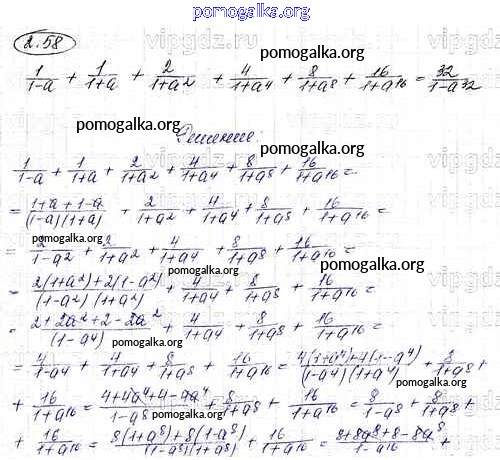 pomogalka.org
2.58
pomogalka.org
1/(1-a) + 1/(1+a) + 2/(1+a²) + 4/(1+a⁴) + 8/(1+a⁸) + 16/(1+a¹⁶) = 32/(1-a³²)
pomogalka.org
Решение:
1/(1-a) + 1/(1+a) + 2/(1+a²) + 4/(1+a⁴) + 8/(1+a⁸) + 16/(1+a¹⁶) =
pomogalka.org
= (1+a+1-a)/((1-a)(1+a)) + 2/(1+a²) + 4/(1+a⁴) + 8/(1+a⁸) + 16/(1+a¹⁶) =
= 2/(1-a²) + 2/(1+a²) + 4/(1+a⁴) + 8/(1+a⁸) + 16/(1+a¹⁶) =
pomogalka.org pomogalka.org
= (2(1+a²)+2(1-a²))/((1-a²)(1+a²)) + 4/(1+a⁴) + 8/(1+a⁸) + 16/(1+a¹⁶) =
= (2+2a²+2-2a²)/(1-a⁴) + 4/(1+a⁴) + 8/(1+a⁸) + 16/(1+a¹⁶) =
pomogalka.org
= 4/(1-a⁴) + 4/(1+a⁴) + 8/(1+a⁸) + 16/(1+a¹⁶) = (4(1+a⁴)+4(1-a⁴))/((1-a⁴)(1+a⁴)) + 8/(1+a⁸) +
pomogalka.org
+ 16/(1+a¹⁶) = (4+4a⁴+4-4a⁴)/(1-a⁸) + 8/(1+a⁸) + 16/(1+a¹⁶) = 8/(1-a⁸) + 8/(1+a⁸) +
pomogalka.org
+ 16/(1+a¹⁶) = (8(1+a⁸)+8(1-a⁸))/((1-a⁸)(1+a⁸)) + 16/(1+a¹⁶) = (8+8a⁸+8-8a⁸)/(1-a¹⁶) +
pomogalka.org